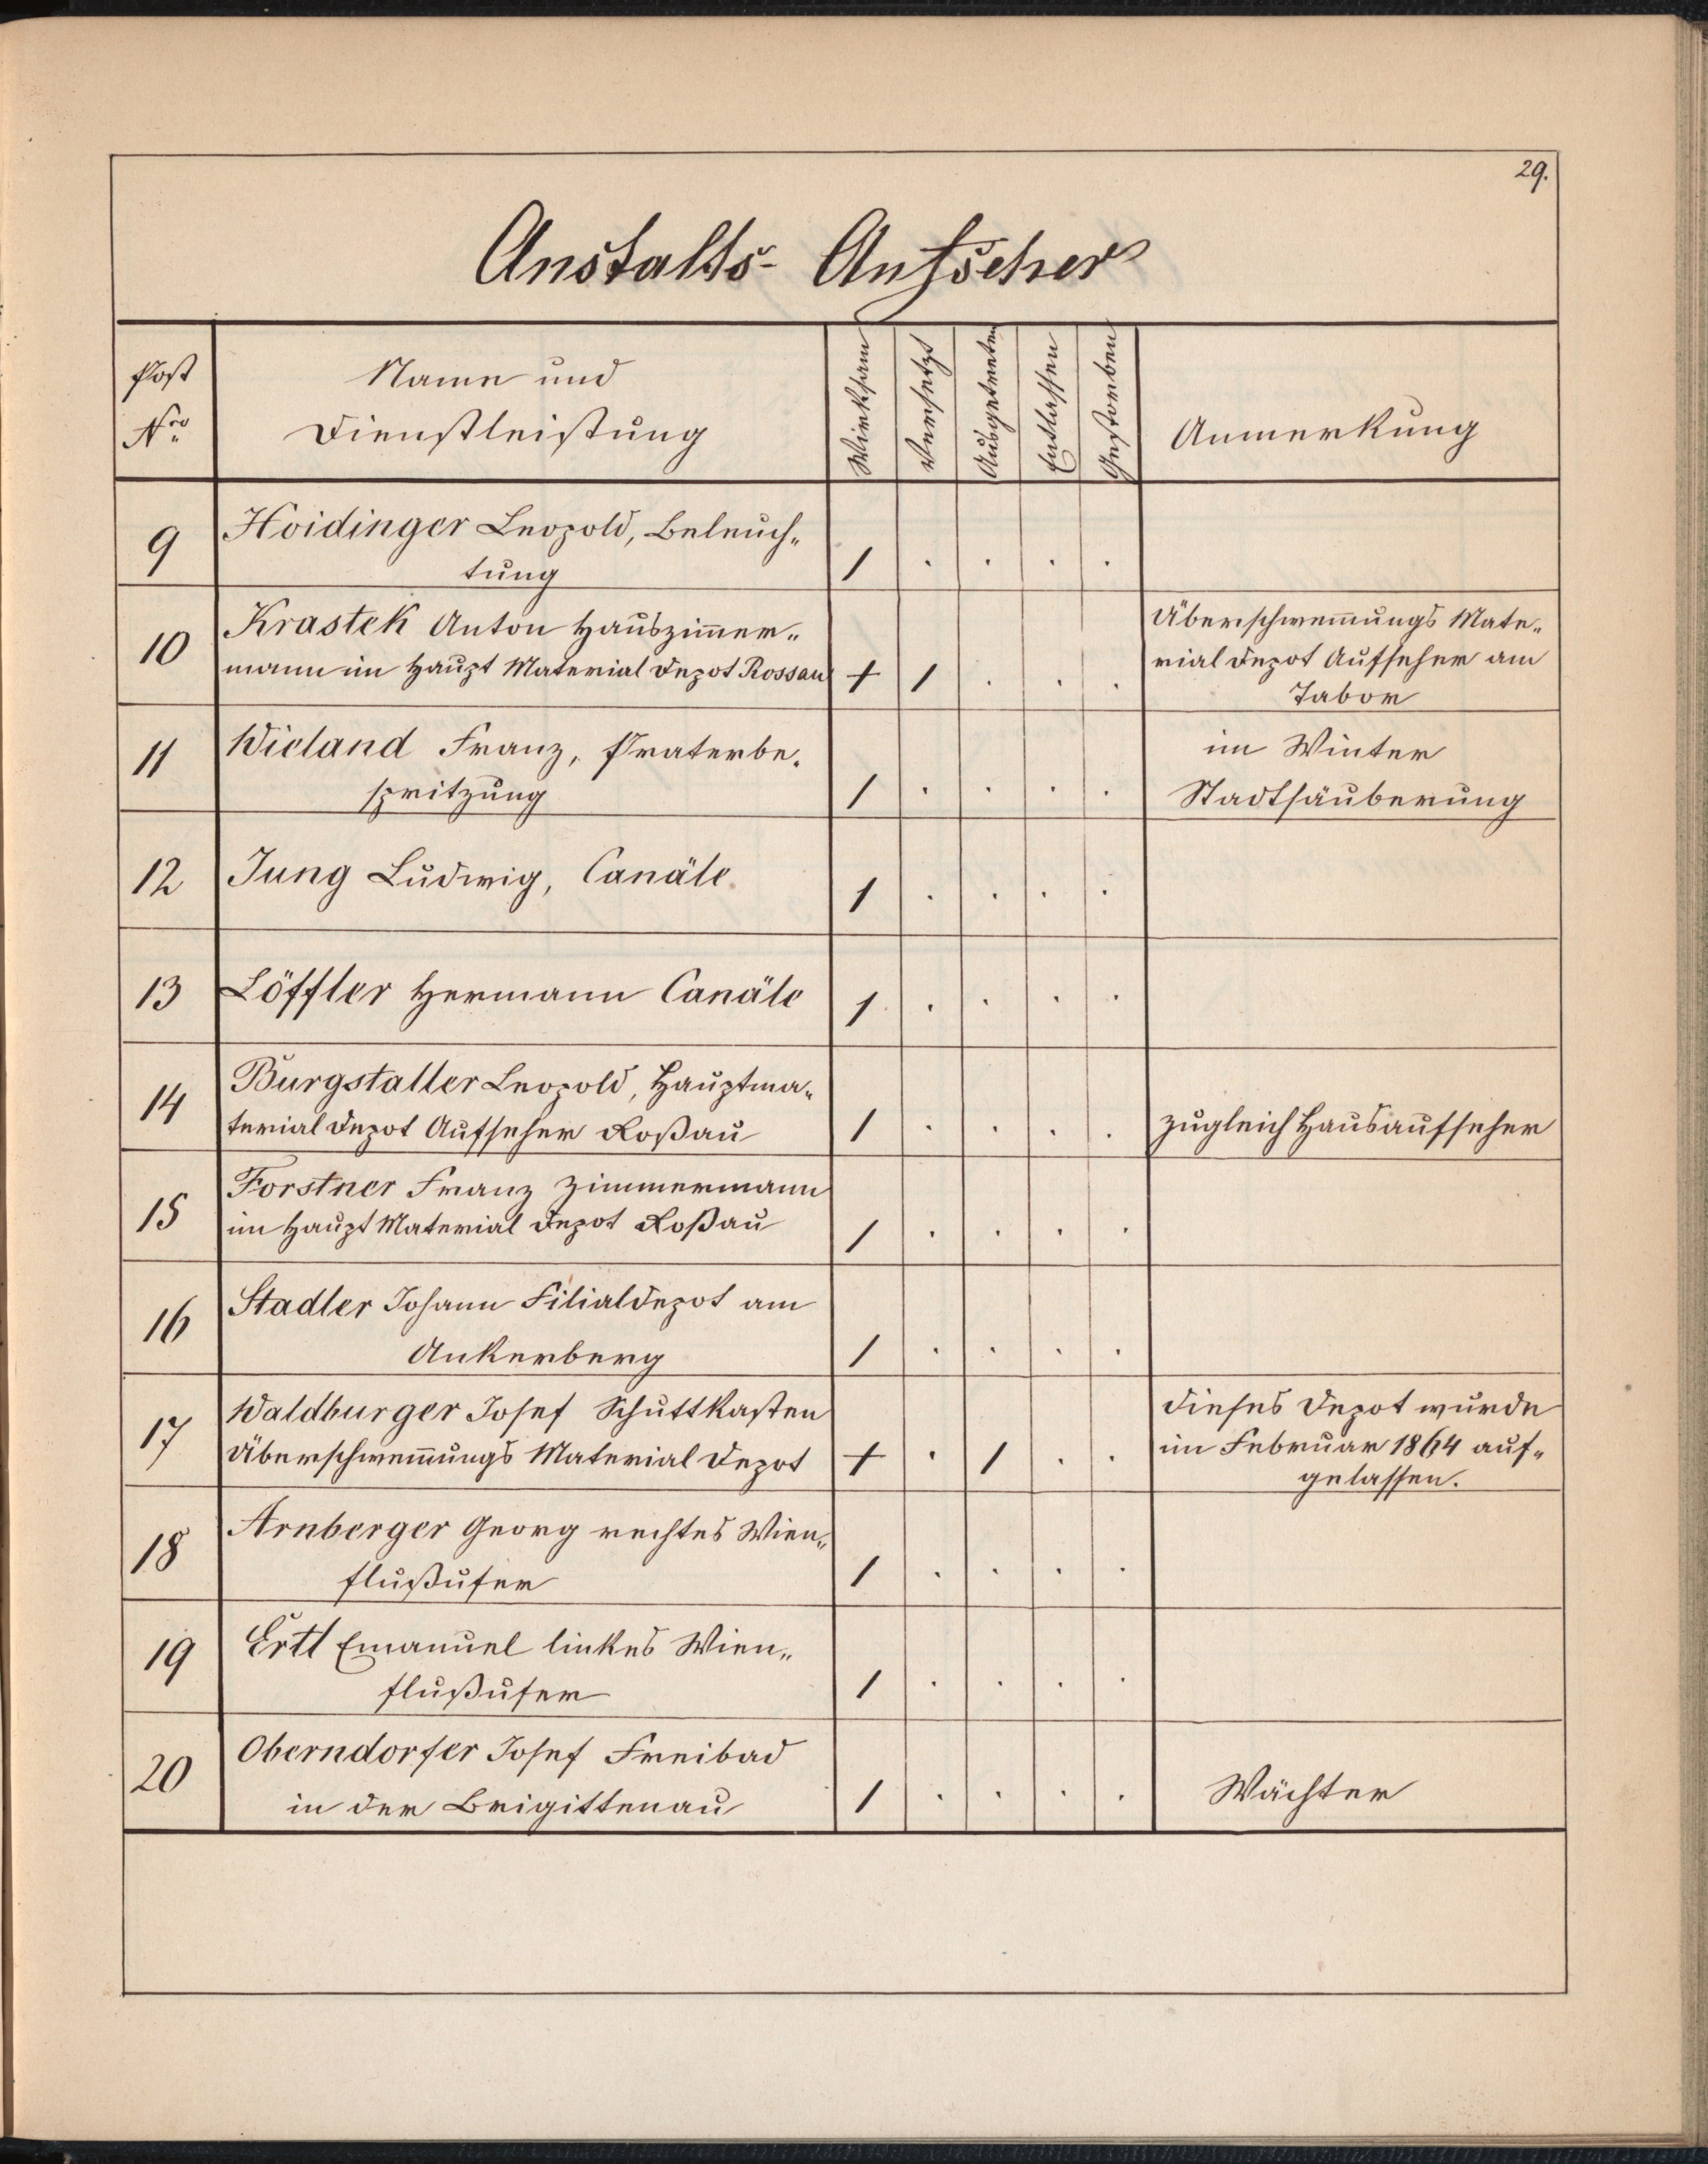 29.
Anstalts- Aufseher
Post
Nro
Name und
Dienstleistung
Wirksam
Versetzt
Ausgetreten
Entlassen
Gestorben
Anmerkung
9
Hoidinger Leopold, Beleuch„
tung
1 . . . .
10
Krastek Anton Hauszim̄er„
mann im Haupt Material Depot Rossau
+ 1 . . .
Überschwem̄ungs Mate„
rial Depot Aufseher am
Tabor
11
Wieland Franz, Praterbe„
spritzung
1 . . . .
im Winter
Stadtsäuberung
12
Jung Ludwig, Canäle
1 . . . .
13
Löffler Hermann Canäle
1 . . . .
14
Burgstaller Leopold, Hauptma„
terial Depot Aufseher Roßau
1 . . . .
zugleich Hausaufseher
15
Forstner Franz Zimmermann
im Haupt Material Depot Roßau
1 . . . .
16
Stadler Johann Filialdepot am
Ankerberg
1 . . . .
17
Waldburger Josef Schuttkasten
Überschwem̄ungs Material Depot
+ . 1 . .
Dieses Depot wurde
im Februar 1864 auf„
gelassen.
18
Arnberger Georg rechtes Wien„
flußufer
1 . . . .
19
Ertl Emanuel linkes Wien„
flußufer
1 . . . .
20
Oberndorfer Josef Freibad
in der Brigittenau
1 . . . .
Wächter